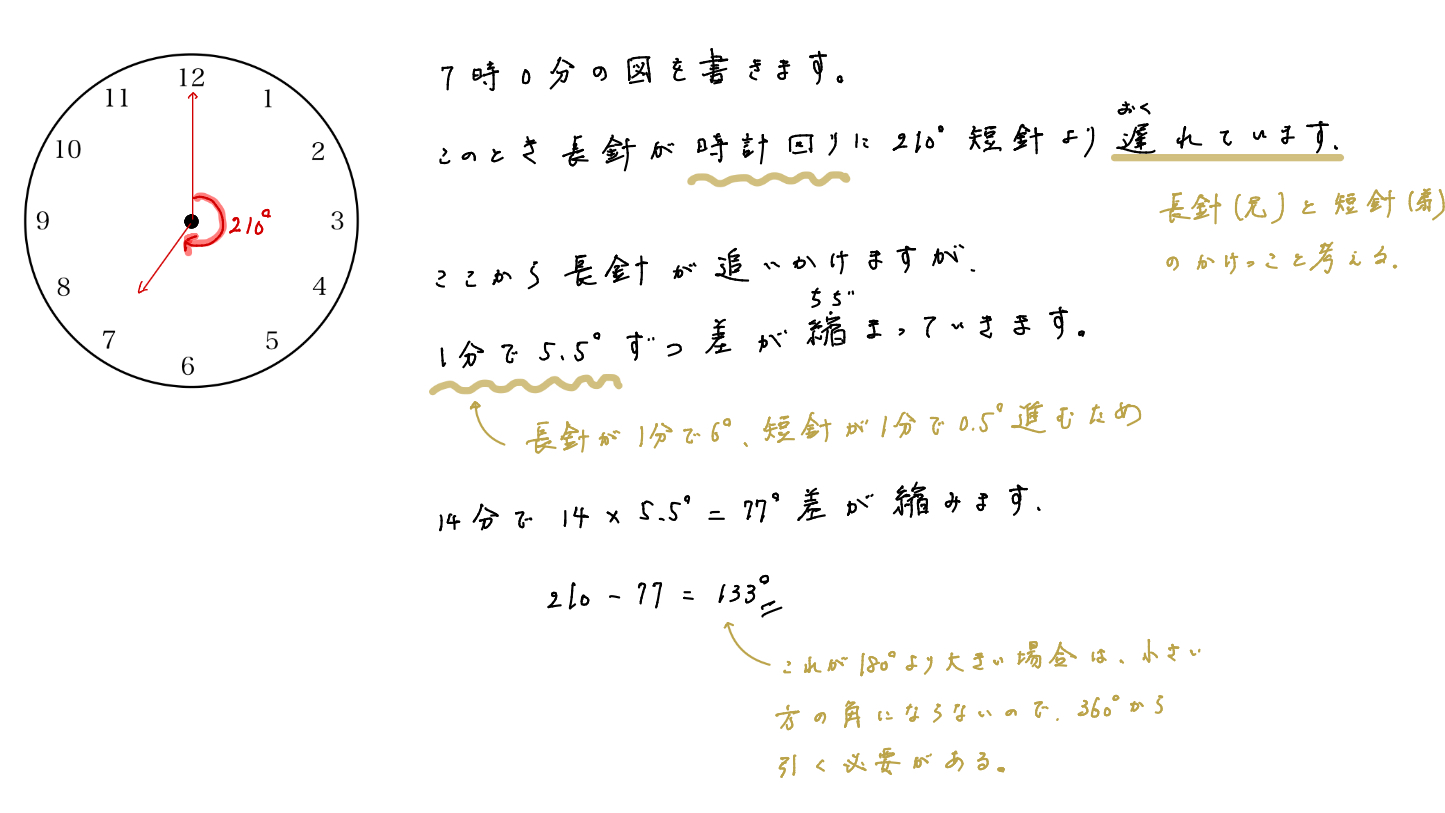 12
11
1
10
2
9
3
8
4
7
5
6
210°
7時0分の図を書きます。
このとき長針が時計回りに210°短針より遅れています.
おく
長針(兄)と短針(弟)
のかけっこと考える.
ここから長針が追いかけますが.
ちぢ
1分で5.5°ずつ差が縮まっていきます。
長針が1分で6°、短針が1分で0.5°進むため
14分で 14 × 5.5° = 77° 差が縮みます.
210 - 77 = 133°
これが180°より大きい場合は、小さい
方の角にならないので、360°から
引く必要がある。